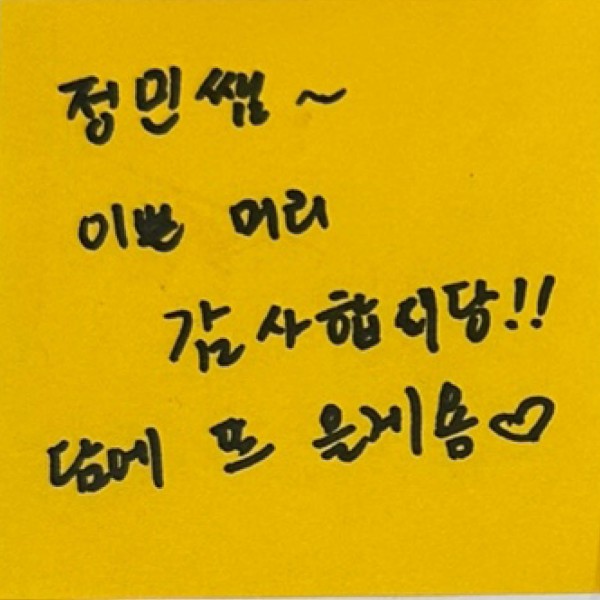 정민쌤~
이쁜 머리
감사합니당!!
담에 또 올게용♡